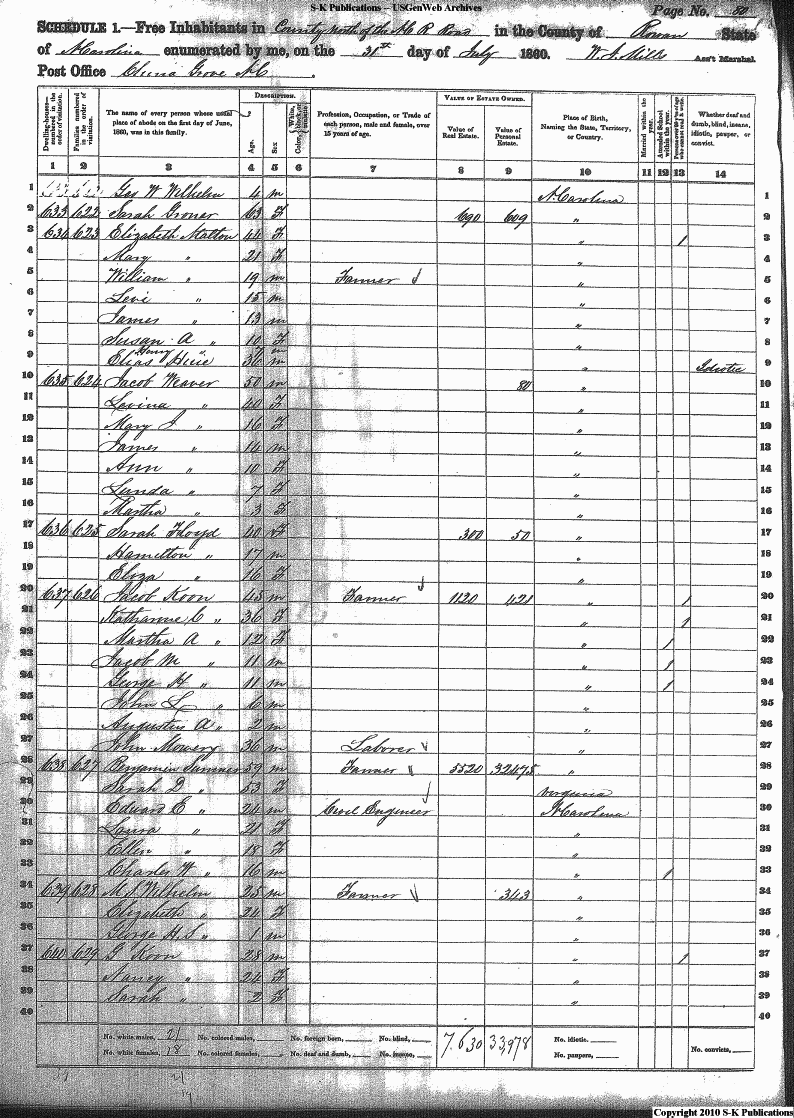 S-K Publications -- USGenWeb Archives
Page No. 80
SCHEDULE 1.—Free Inhabitants in County North of the N C R Road in the County of Rowan State
of N Carolina enumerated by me, on the 31st day of July 1860. Ass't Marshal.
Post Office China Grove N C.
Dwelling-houses—numbered in the order of visitation.
Families numbered in the order of visitation.
The name of every person whose usual place of abode on the first day of June, 1860, was in this family.
DESCRIPTION.
Age.
Sex.
Color, White, black, or mulatto
Profession, Occupation, or Trade of each person, male and female, over 15 years of age.
VALUE OF ESTATE OWNED.
Value of Real Estate.
Value of Personal Estate.
Place of Birth, Naming the State, Territory, or Country.
Married within the year.
Attended School within the year.
Persons over 20 years of age who cannot read & write.
Whether deaf and dumb, blind, insane, idiotic, pauper, or convict.
1 2 3 4 5 6 7 8 9 10 11 12 13 14
1 Geo W Wilhelm 4 m N Carolina 1
2 633 622 Sarah 63 F 690 609 " 2
3 634 623 Elizabeth 44 F " 1 3
4 Mary " 21 F " 4
5 William " 19 m Farmer " 5
6 Levi " 15 m " 6
7 James " 13 m " 7
8 Susan A " 10 F " 8
9 Elias Henry m " Idiotic 9
10 635 624 Jacob Weaver 50 m 80 " 10
11 Lavina " 40 F " 11
12 Mary J " 16 F " 12
13 James " 14 m " 13
14 Ann " 10 F " 14
15 Lunda " 7 F " 15
16 Martha " 3 F " 16
17 636 625 Sarah Floyd 40 F 300 50 " 17
18 Hamelton " 17 m " 18
19 Eliza " 16 F " 19
20 637 626 Jacob Koon 45 m Farmer 1120 421 " 1 20
21 Katharine C " 36 F " 1 21
22 Martha A " 12 F " 1 22
23 Jacob M " 11 m " 1 23
24 George H " 11 m " 1 24
25 John L " 6 m " 25
26 Augustus A " 2 m " 26
27 John Mowery 36 m Laborer " 27
28 638 627 Benjamin Sumner 59 m Farmer 5520 32475 " 28
29 Sarah D " 53 F Virginia 29
30 Edward E " 24 m Civil Engineer N Carolina 30
31 Laura " 21 F " 31
32 Ellen " 18 F " 32
33 Charles W " 16 m " 1 33
34 639 628 M S Wilhelm 25 m Farmer 343 " 34
35 Elizabeth " 24 F " 35
36 George H S " 1 m " 36
37 640 629 G Koon 28 m " 1 37
38 Nancy " 24 F " 38
39 Sarah " 2 F " 39
40 40
No. white males, 21 No. colored males, No. foreign born, No. blind, 7,630 33,978 No. idiotic, No. convicts,
No. white females, 18 No. colored females, No. deaf and dumb, No. insane, No. paupers,
21
Copyright 2010 S-K Publications